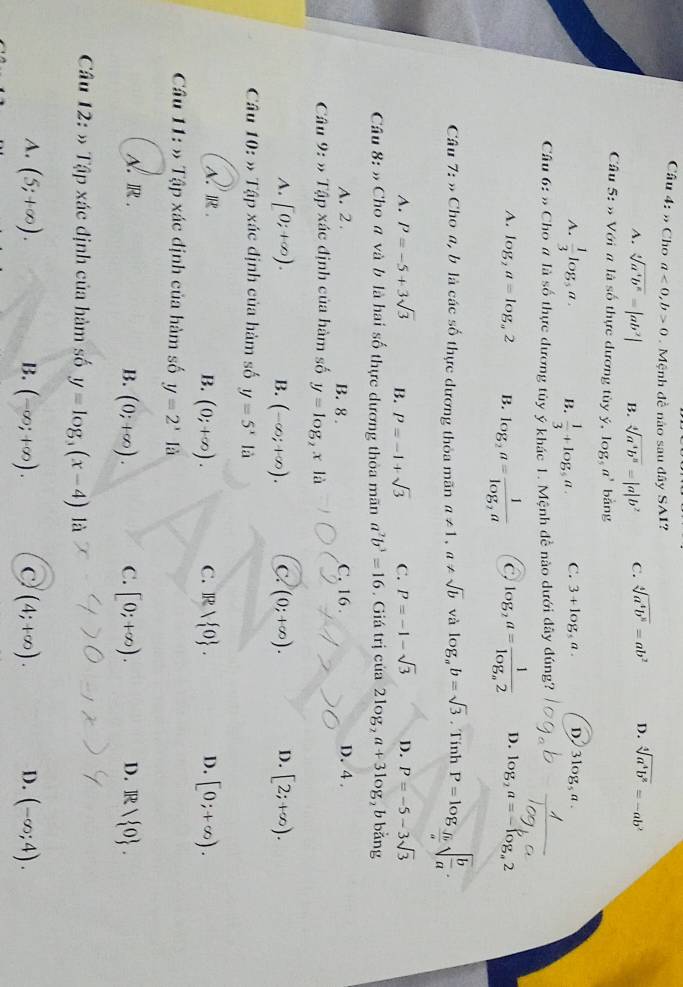 Câu 4: » Cho a < 0, b > 0 . Mệnh đề nào sau đây SAI?
A. ∜(a⁴b⁸) = |ab²| B. ∜(a⁴b⁸) = |a|b² C. ∜(a⁴b⁸) = ab² D. ∜(a⁴b⁸) = -ab²
Câu 5: » Với a là số thực dương tùy ý, log₅ a³ bằng
A. 1/3 log₅ a . B. 1/3 + log₅ a . C. 3 + log₅ a . D. 3 log₅ a .
Câu 6: » Cho a là số thực dương tùy ý khác 1. Mệnh đề nào dưới đây đúng? logₐ b = 1/log_b a
A. log₂ a = logₐ 2 B. log₂ a = 1/log₂ a C. log₂ a = 1/logₐ 2 D. log₂ a = -logₐ 2
Câu 7: » Cho a, b là các số thực dương thỏa mãn a ≠ 1, a ≠ √b và logₐ b = √3 . Tính P = log_(√b/a) √(b/a) .
A. P = -5 + 3√3 B. P = -1 + √3 C. P = -1 - √3 D. P = -5 - 3√3
Câu 8: » Cho a và b là hai số thực dương thỏa mãn a²b³ = 16 . Giá trị của 2log₂ a + 3log₂ b bằng
A. 2 . B. 8 . C. 16 . D. 4 .
Câu 9: » Tập xác định của hàm số y = log₂ x là
A. [0; +∞). B. (-∞; +∞). C. (0; +∞). D. [2; +∞).
Câu 10: » Tập xác định của hàm số y = 5ˣ là
A. ℝ . B. (0; +∞). C. ℝ \ {0}. D. [0; +∞).
Câu 11: » Tập xác định của hàm số y = 2ˣ là
A. ℝ . B. (0; +∞). C. [0; +∞). D. ℝ \ {0}.
Câu 12: » Tập xác định của hàm số y = log₃ (x - 4) là x - 4 > 0 ⇒ x > 4
A. (5; +∞). B. (-∞; +∞). C. (4; +∞). D. (-∞; 4).